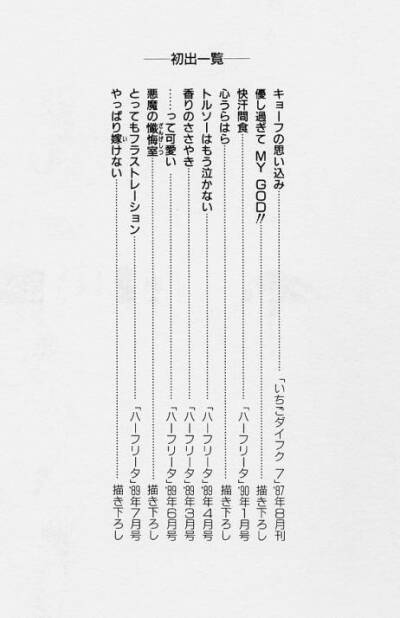 初出一覧
キョーフの思い込み……「いちごダイフク 7」'87年8月刊
優し過ぎて MY GOD!!……描き下ろし
快汗間食……「ハーフリータ」'90年1月号
心うらはら……描き下ろし
トルソーはもう泣かない……「ハーフリータ」'89年4月号
香りのささやき……「ハーフリータ」'89年3月号
……って可愛い……「ハーフリータ」'89年6月号
悪魔の懺悔室(ざんげしつ)……描き下ろし
とってもフラストレーション……「ハーフリータ」'89年7月号
やっぱり嫁(い)けない……描き下ろし